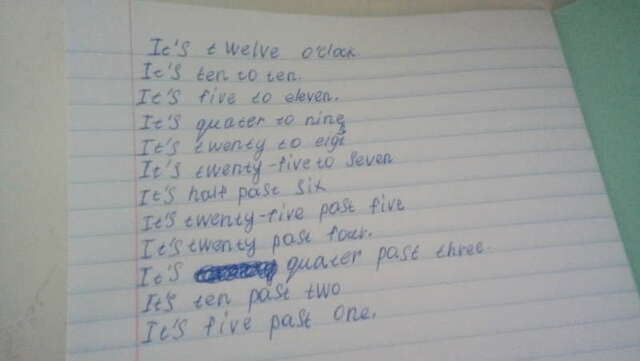 It's twelve o'clock
It's ten to ten.
It's five to eleven.
It's quater to nine
It's twenty to eigt
It's twenty-five to seven
It's half past six
It's twenty-five past five
It's twenty past four.
It's quater past three.
It's ten past two
It's five past one.